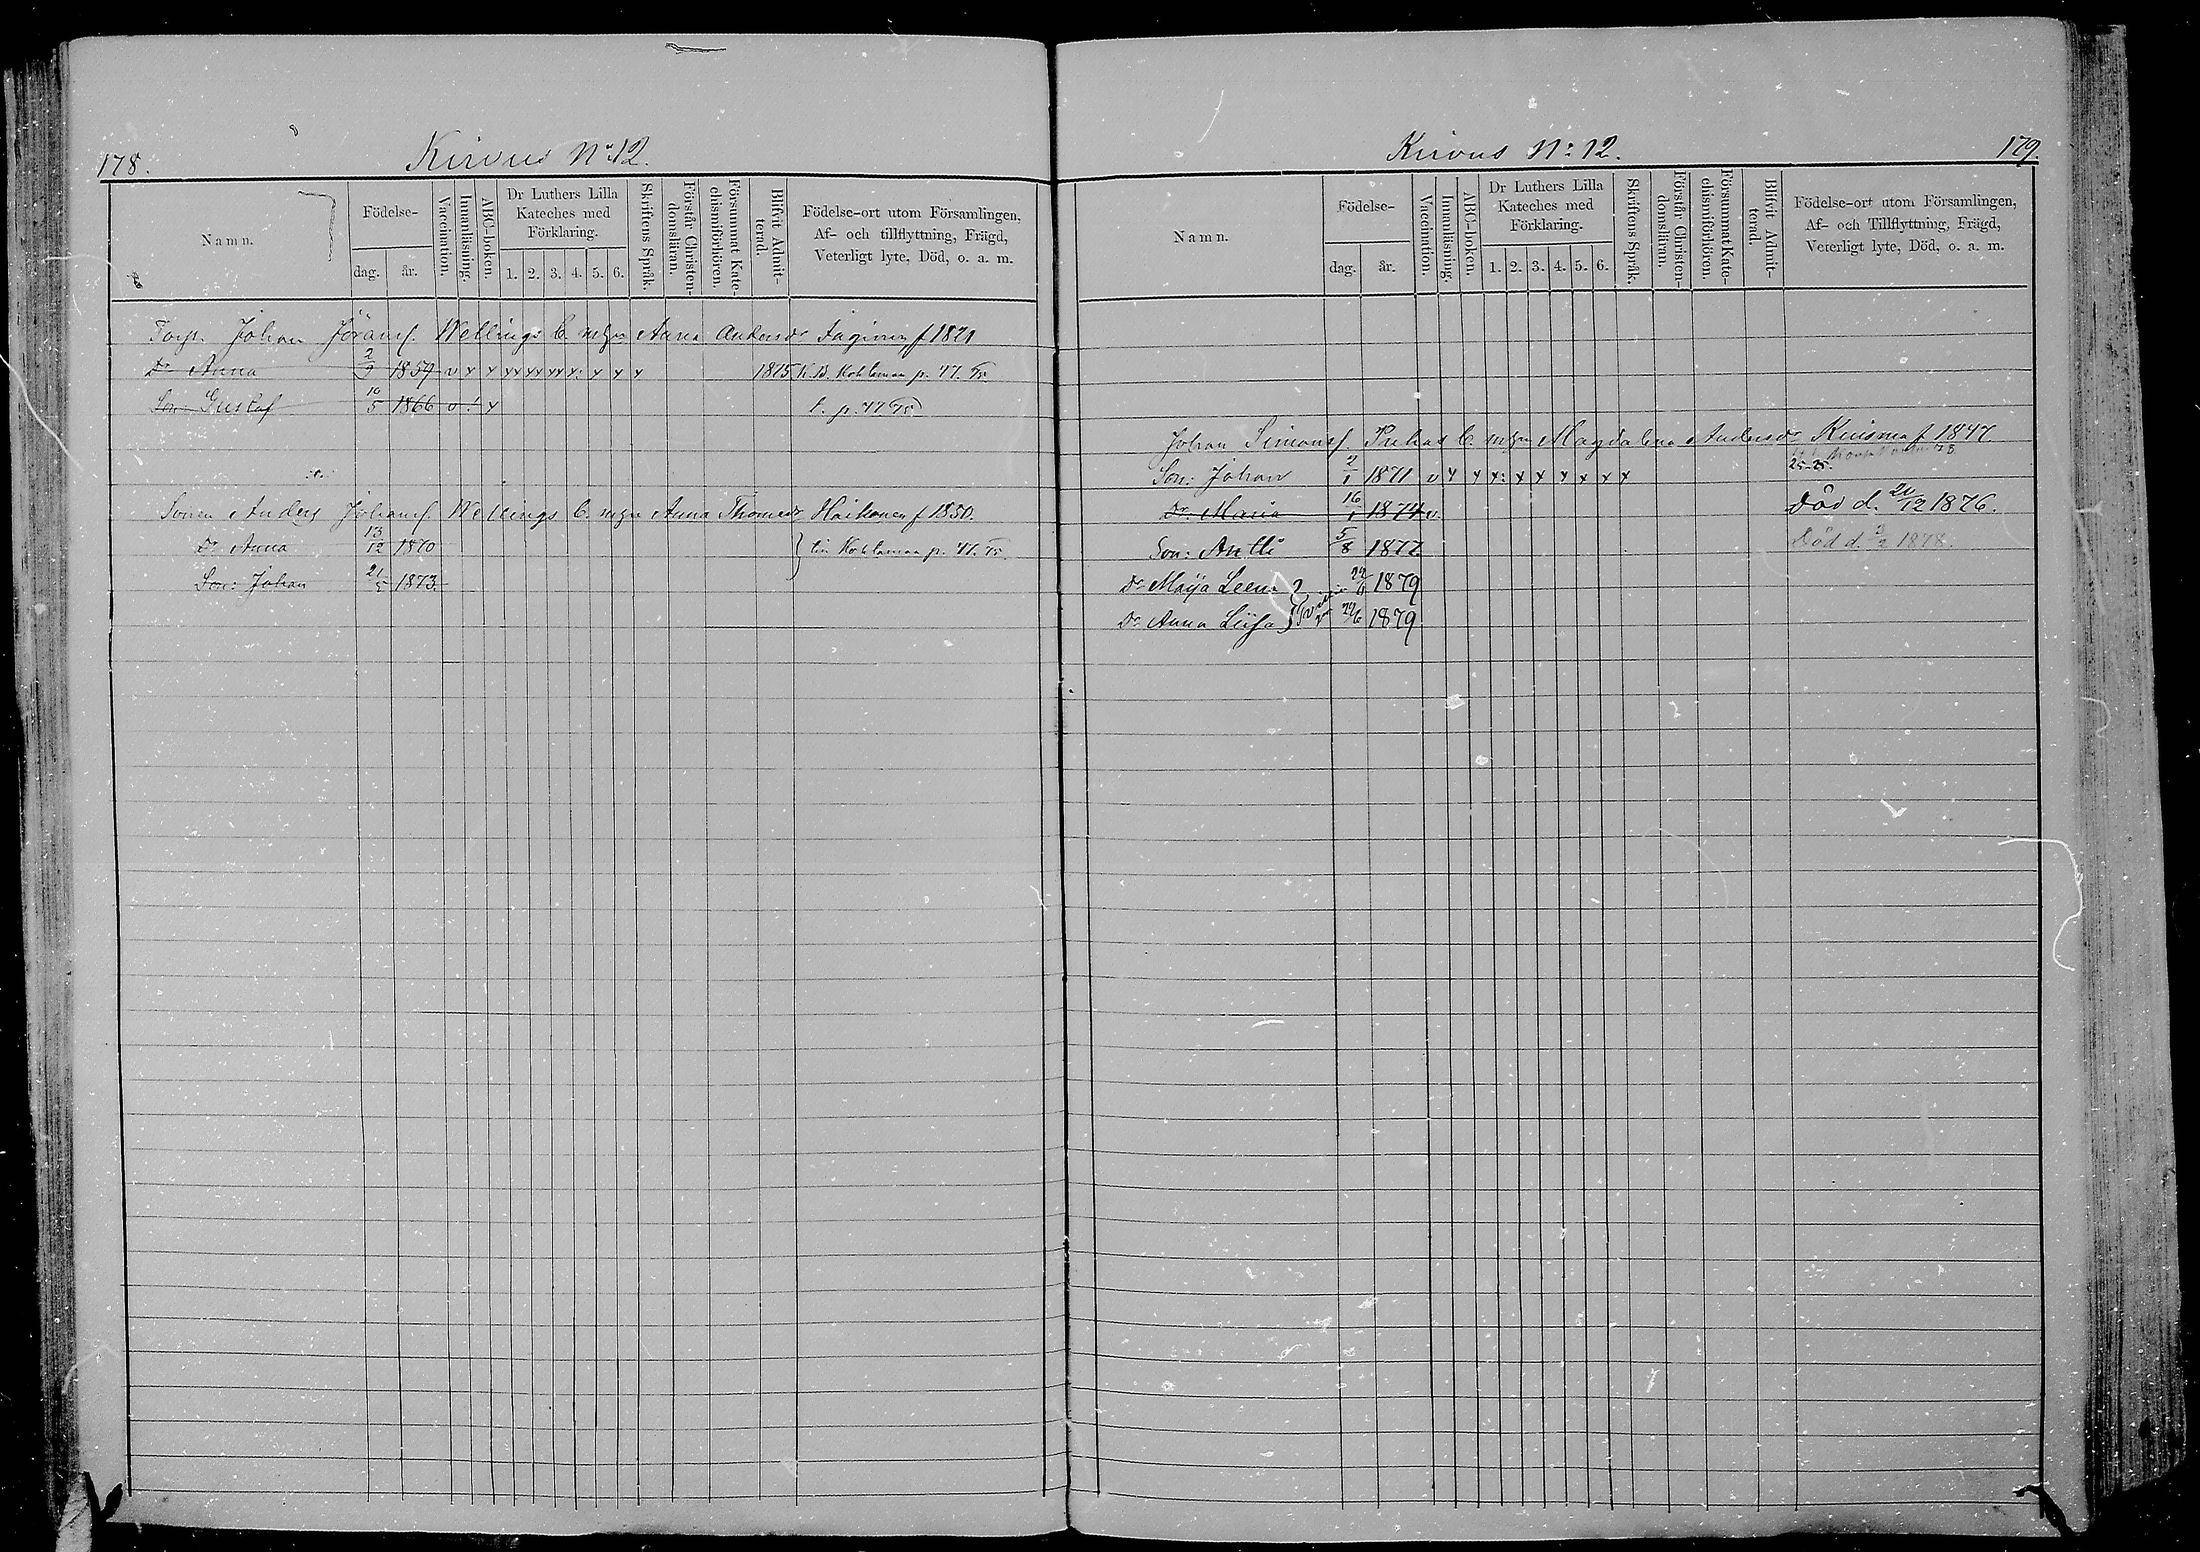 178.
Kirvus No 12.
Namn.
Födelse-
dag.
år.
Vaccination.
Innanläsning.
ABC-boken.
Dr Luthers Lilla
Kateches med
Förklaring.
1. 2. 3. 4. 5. 6.
Skriftens Språk.
Förstår Christen-
domsläran.
Försummat Kate-
chismiförhören.
Blifvit Admit-
terad.
Födelse-ort utom Församlingen,
Af- och tillflyttning, Frägd,
Veterligt lyte, Död, o. a. m.
Torp. Johan Jöranss. Wellings b. m hu Anna Andersdr f 1821
Dr Anna 2/9 1859 v x x xx xx xx x: x x x 1875 Kohlamaa p. 77.
Son: Gustaf 10/5 1866 v ! x p. 77
Sonen Anders Johanss. Wellings b. m hu Anna Thomasdr Haikonen f 1850.
Dr Anna 13/12 1870 } till Kohlamaa p. 77.
Son: Johan 21/5 1873
Kirvus No 12.
179.
Namn.
Födelse-
dag.
år.
Vaccination.
Innanläsning.
ABC-boken.
Dr Luthers Lilla
Kateches med
Förklaring.
1. 2. 3. 4. 5. 6.
Skriftens Språk.
Förstår Christen-
domsläran.
Försummat Kate-
chismiförhören.
Blifvit Admit-
terad.
Födelse-ort utom Församlingen,
Af- och Tillflyttning, Frägd,
Veterligt lyte, Död, o. a. m.
Johan Simonss. Puhas b. m hu Magdalena Andersdr Kuisma f 1847
Son: Johan 2/1 1871 v x x x: x x x x x x
Dr Maria 16/1 1874 v. Död d. 20/12 1876.
Son: Antti 5/8 1877 Död d. 3/2 1878.
Dr Maija Leena 24/6 1879
Dr Anna Liisa 24/6 1879